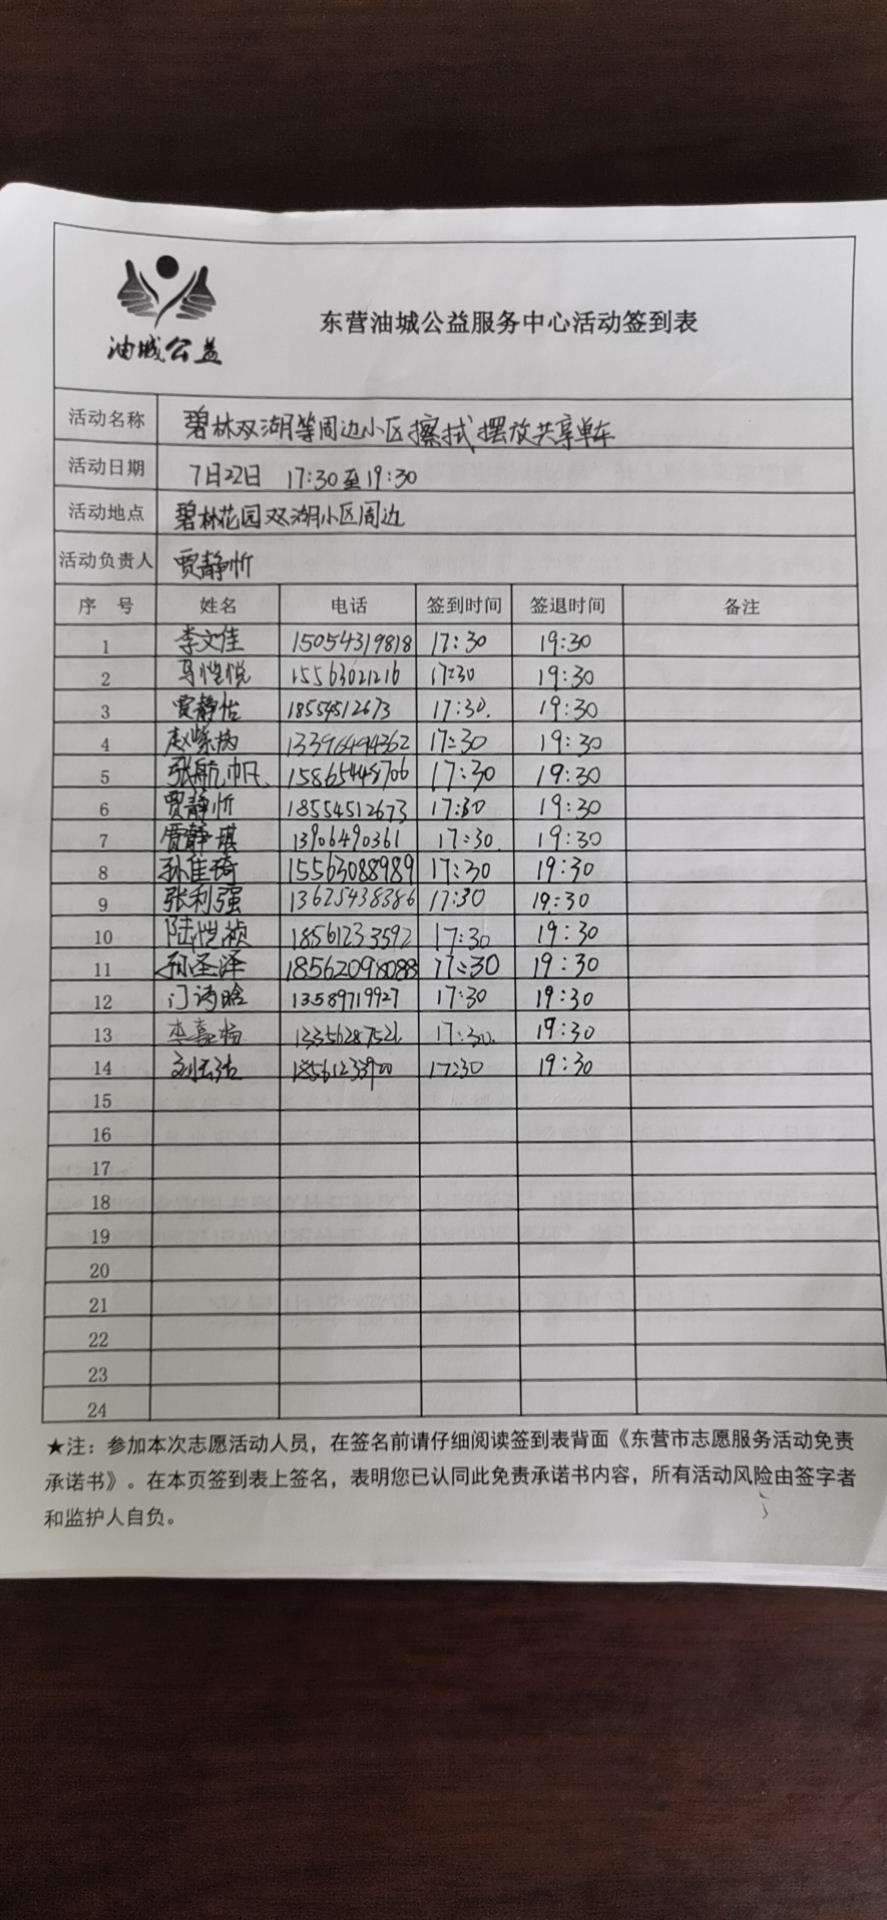 油城公益
东营油城公益服务中心活动签到表
活动名称 碧林双湖等周边小区擦拭摆放共享单车
活动日期 7月22日 17:30至19:30
活动地点 碧林花园双湖小区周边
活动负责人 贾静忻
序 号 姓名 电话 签到时间 签退时间 备注
1 李文佳 15054319818 17:30 19:30
2 马恺悦 15563021216 17:30 19:30
3 贾静怡 18554512673 17:30. 19:30
4 赵 13396494362 17:30 19:30
5 张航帆 15865448706 17:30 19:30
6 贾静忻 18554512673 17:30 19:30
7 贾静琪 13906490361 17:30. 19:30
8 孙佳琦 15563088989 17:30 19:30
9 张利强 13625438386 17:30 19:30
10 陆恺祯 18561233592 17:30 19:30
11 孙圣泽 18562098088 17:30 19:30
12 门诗晗 13589719927 17:30 19:30
13 李嘉 13356287521 17:30. 19:30
14 刘 17:30 19:30
15
16
17
18
19
20
21
22
23
24
★注：参加本次志愿活动人员，在签名前请仔细阅读签到表背面《东营市志愿服务活动免责
承诺书》。在本页签到表上签名，表明您已认同此免责承诺书内容，所有活动风险由签字者
和监护人自负。